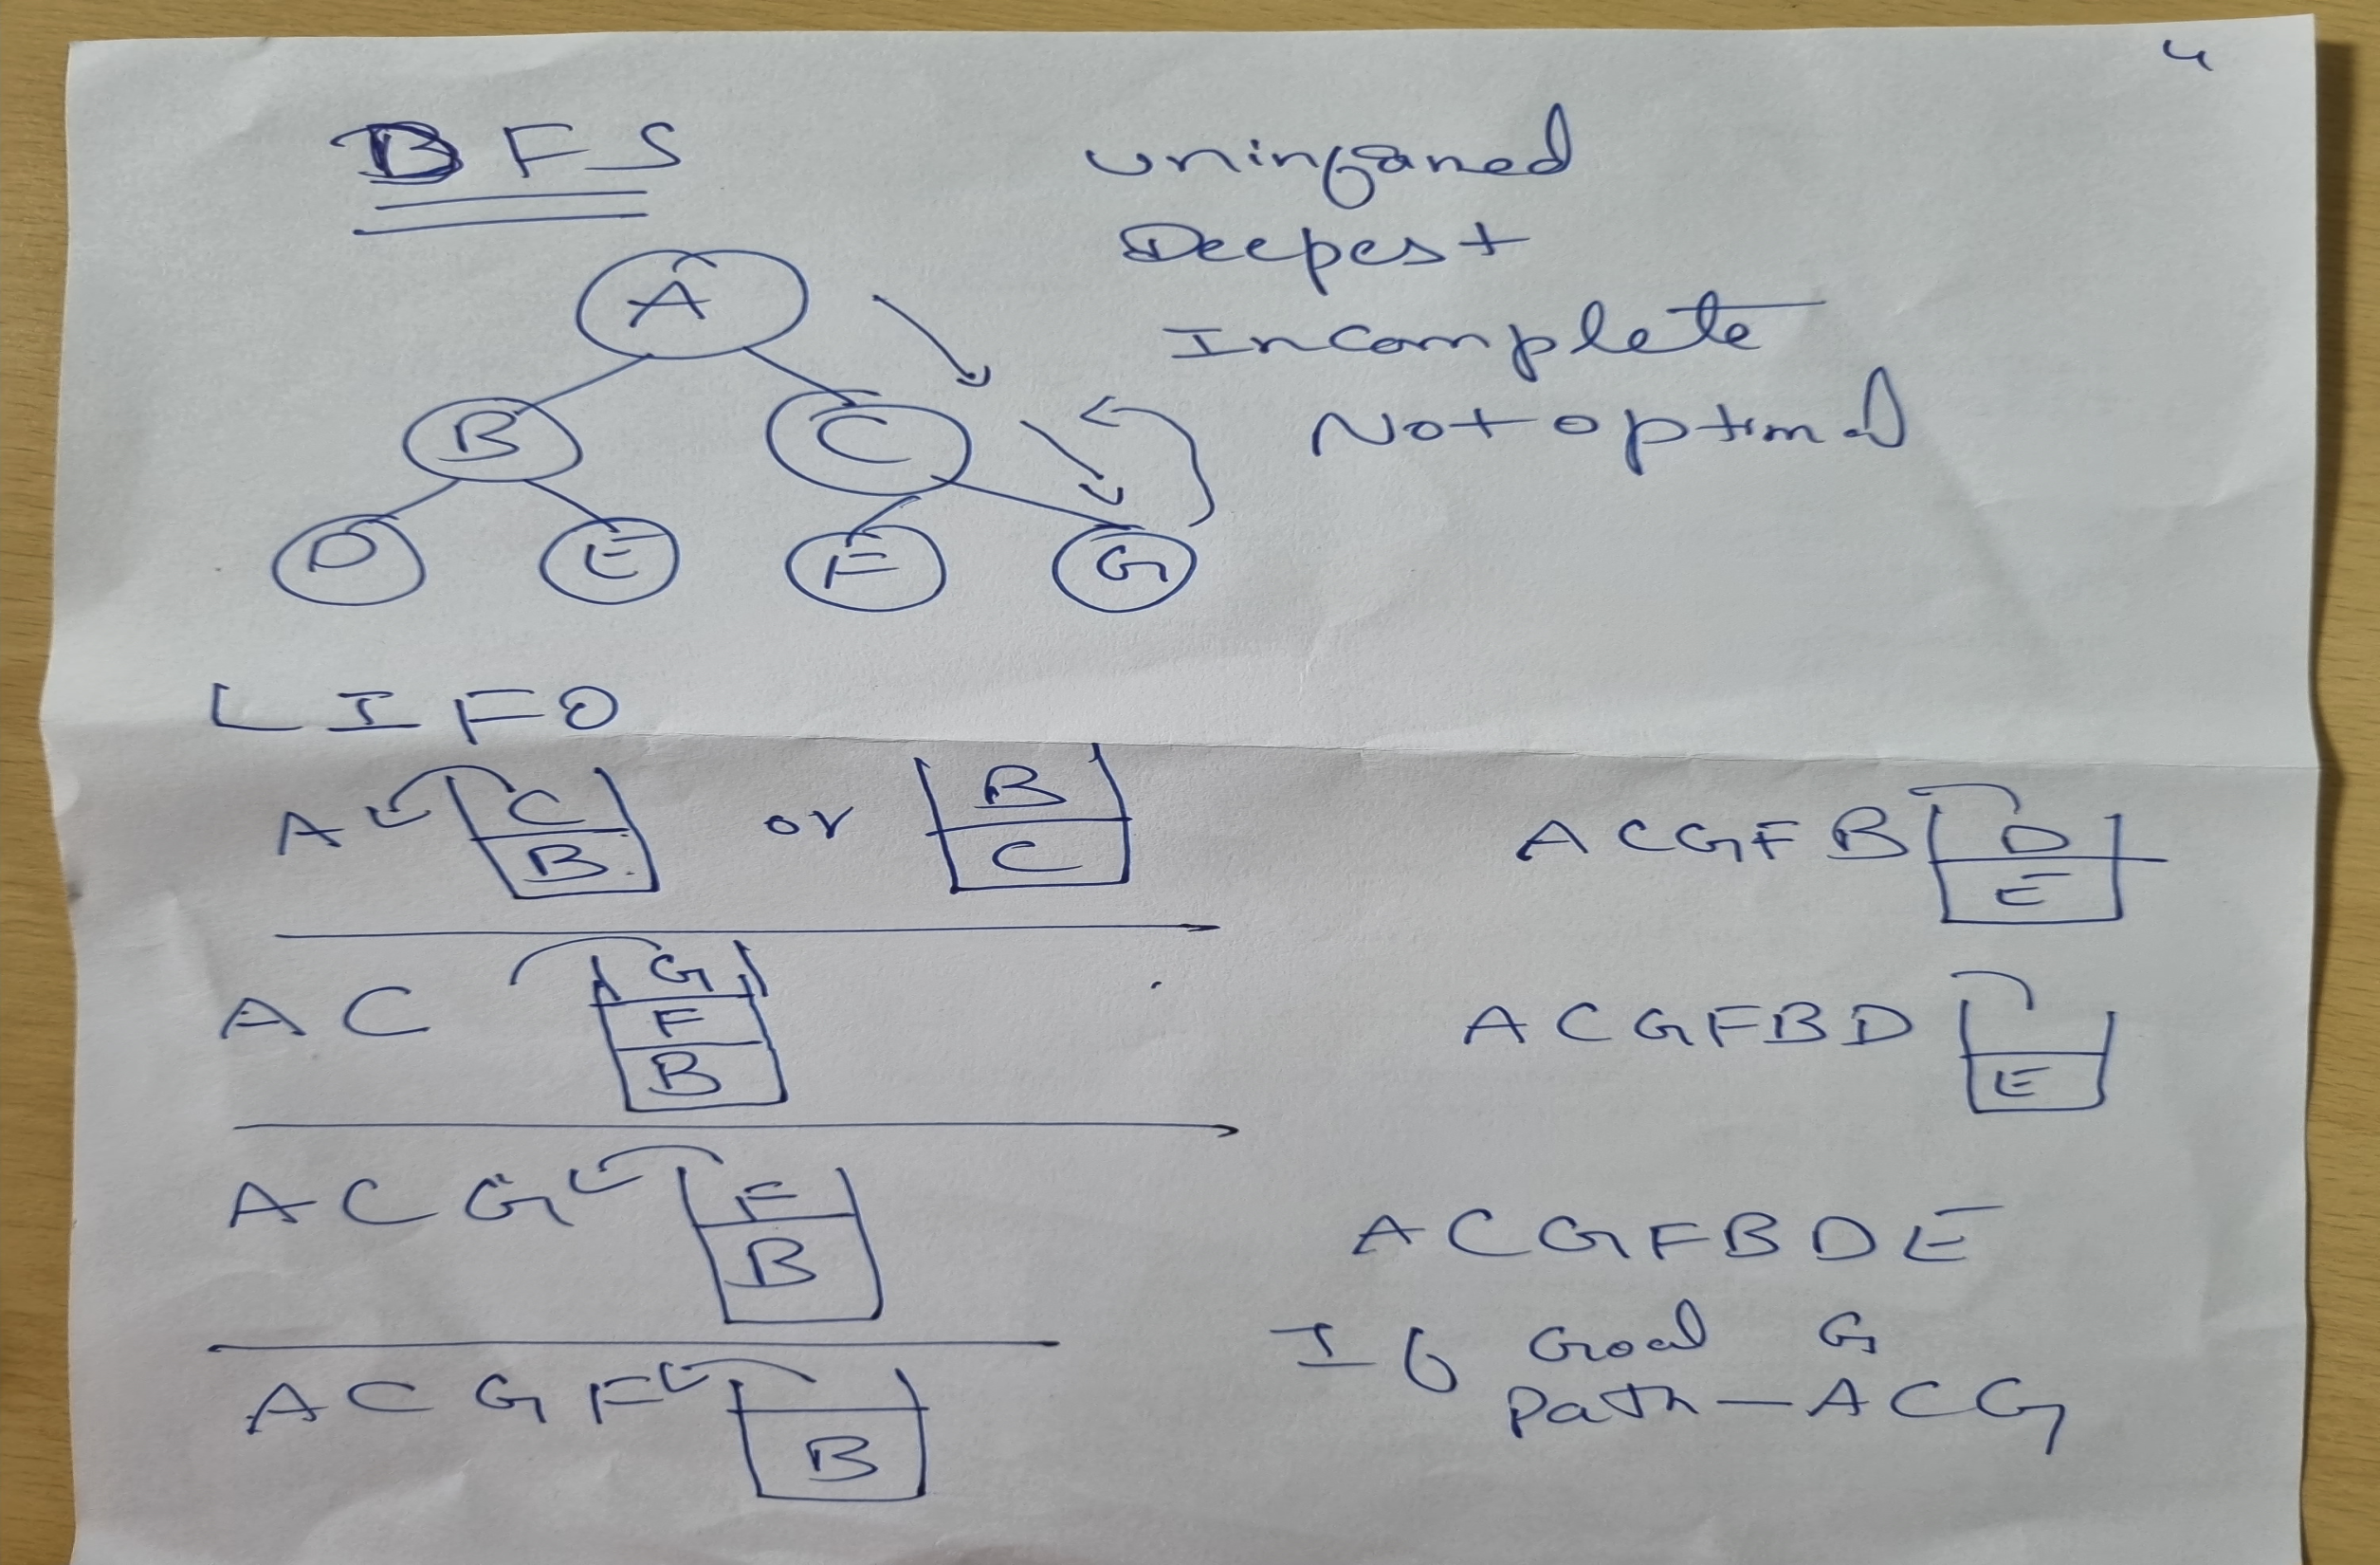 4
DFS
Uninformed
Deepest
Incomplete
Not optimal
A
B C
D E F G
LIFO
A C B or B C
A C G F B
A C G F B
A C G F B
A C G F B D E
A C G F B D E
A C G F B D E
If Goal G
Path - A C G